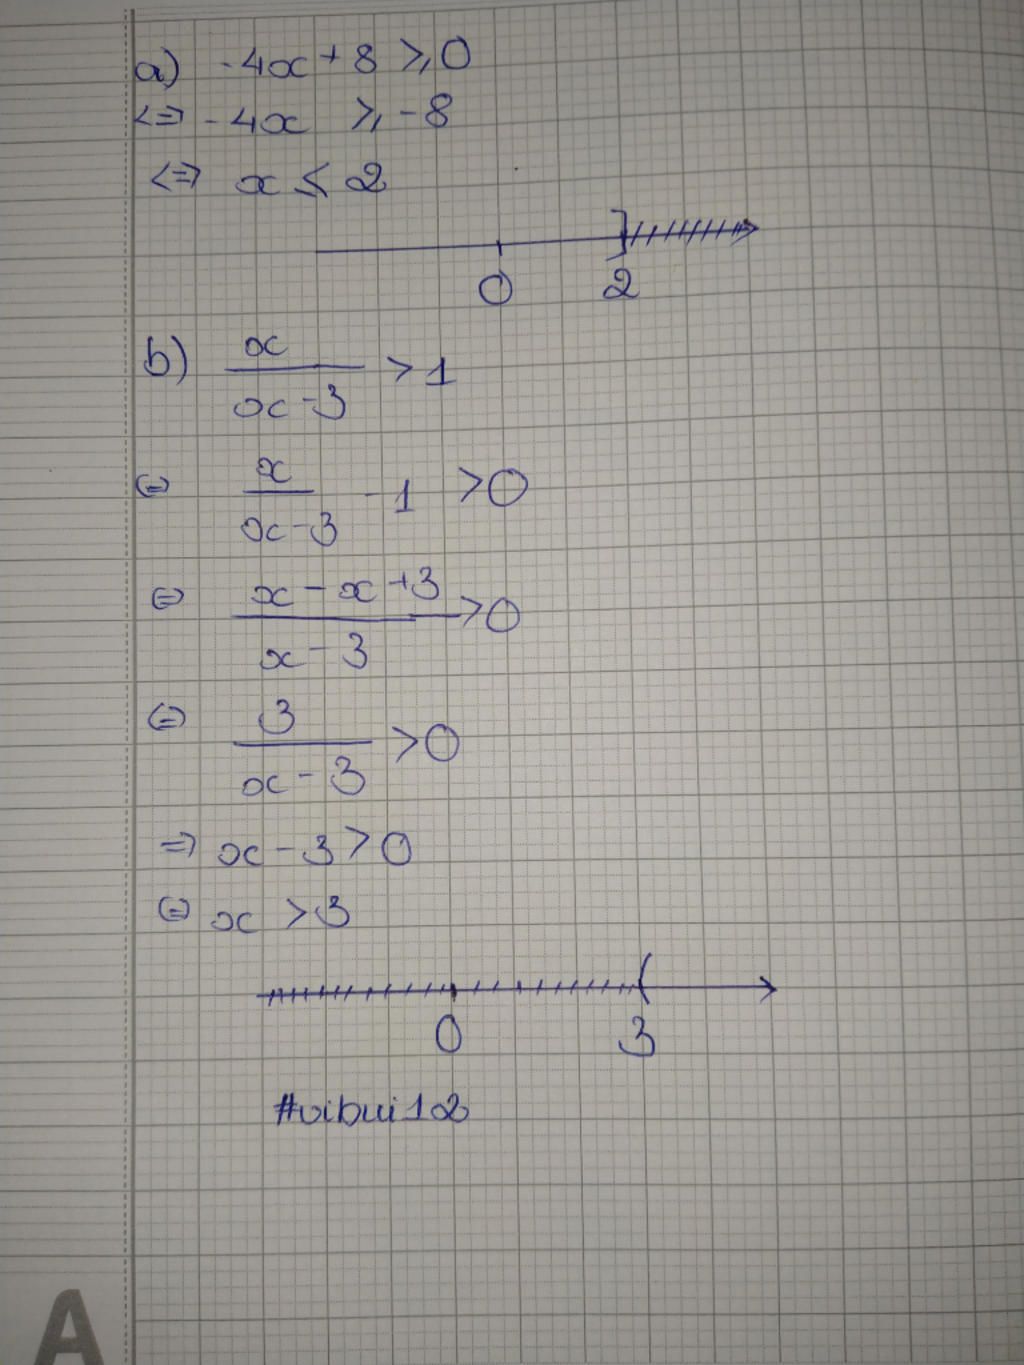 a) -4x + 8 ≥ 0
<=> -4x ≥ -8
<=> x ≤ 2
0 2
b) x/(x-3) > 1
<=> x/(x-3) - 1 > 0
<=> (x - x + 3)/(x - 3) > 0
<=> 3/(x - 3) > 0
=> x - 3 > 0
<=> x > 3
0 3
#vibui12
A